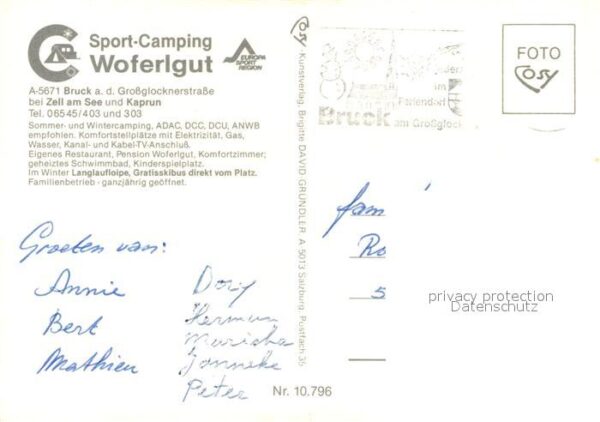 Sport-Camping
Woferlgut
EUROPA
SPORT
REGION
A-5671 Bruck a. d. Großglocknerstraße
bei Zell am See und Kaprun
Tel. 06545/403 und 303
Sommer- und Wintercamping, ADAC, DCC, DCU, ANWB
empfohlen. Komfortstellplätze mit Elektrizität, Gas,
Wasser, Kanal- und Kabel-TV-Anschluß.
Eigenes Restaurant, Pension Woferlgut, Komfortzimmer;
geheiztes Schwimmbad, Kinderspielplatz.
Im Winter Langlaufloipe, Gratisskibus direkt vom Platz.
Familienbetrieb - ganzjährig geöffnet.
Groeten van:
Annie
Bert
Mathieu
Dory
Herman
Mariska
Janneke
Peter
Nr. 10.796
Cosy - Kunstverlag, Brigitte DAVID GRÜNDLER A 5013 Salzburg, Postfach 35
im
Feriendorf
Bruck am Großglock
FOTO
Cosy
fam
Ro
5
privacy protection
Datenschutz